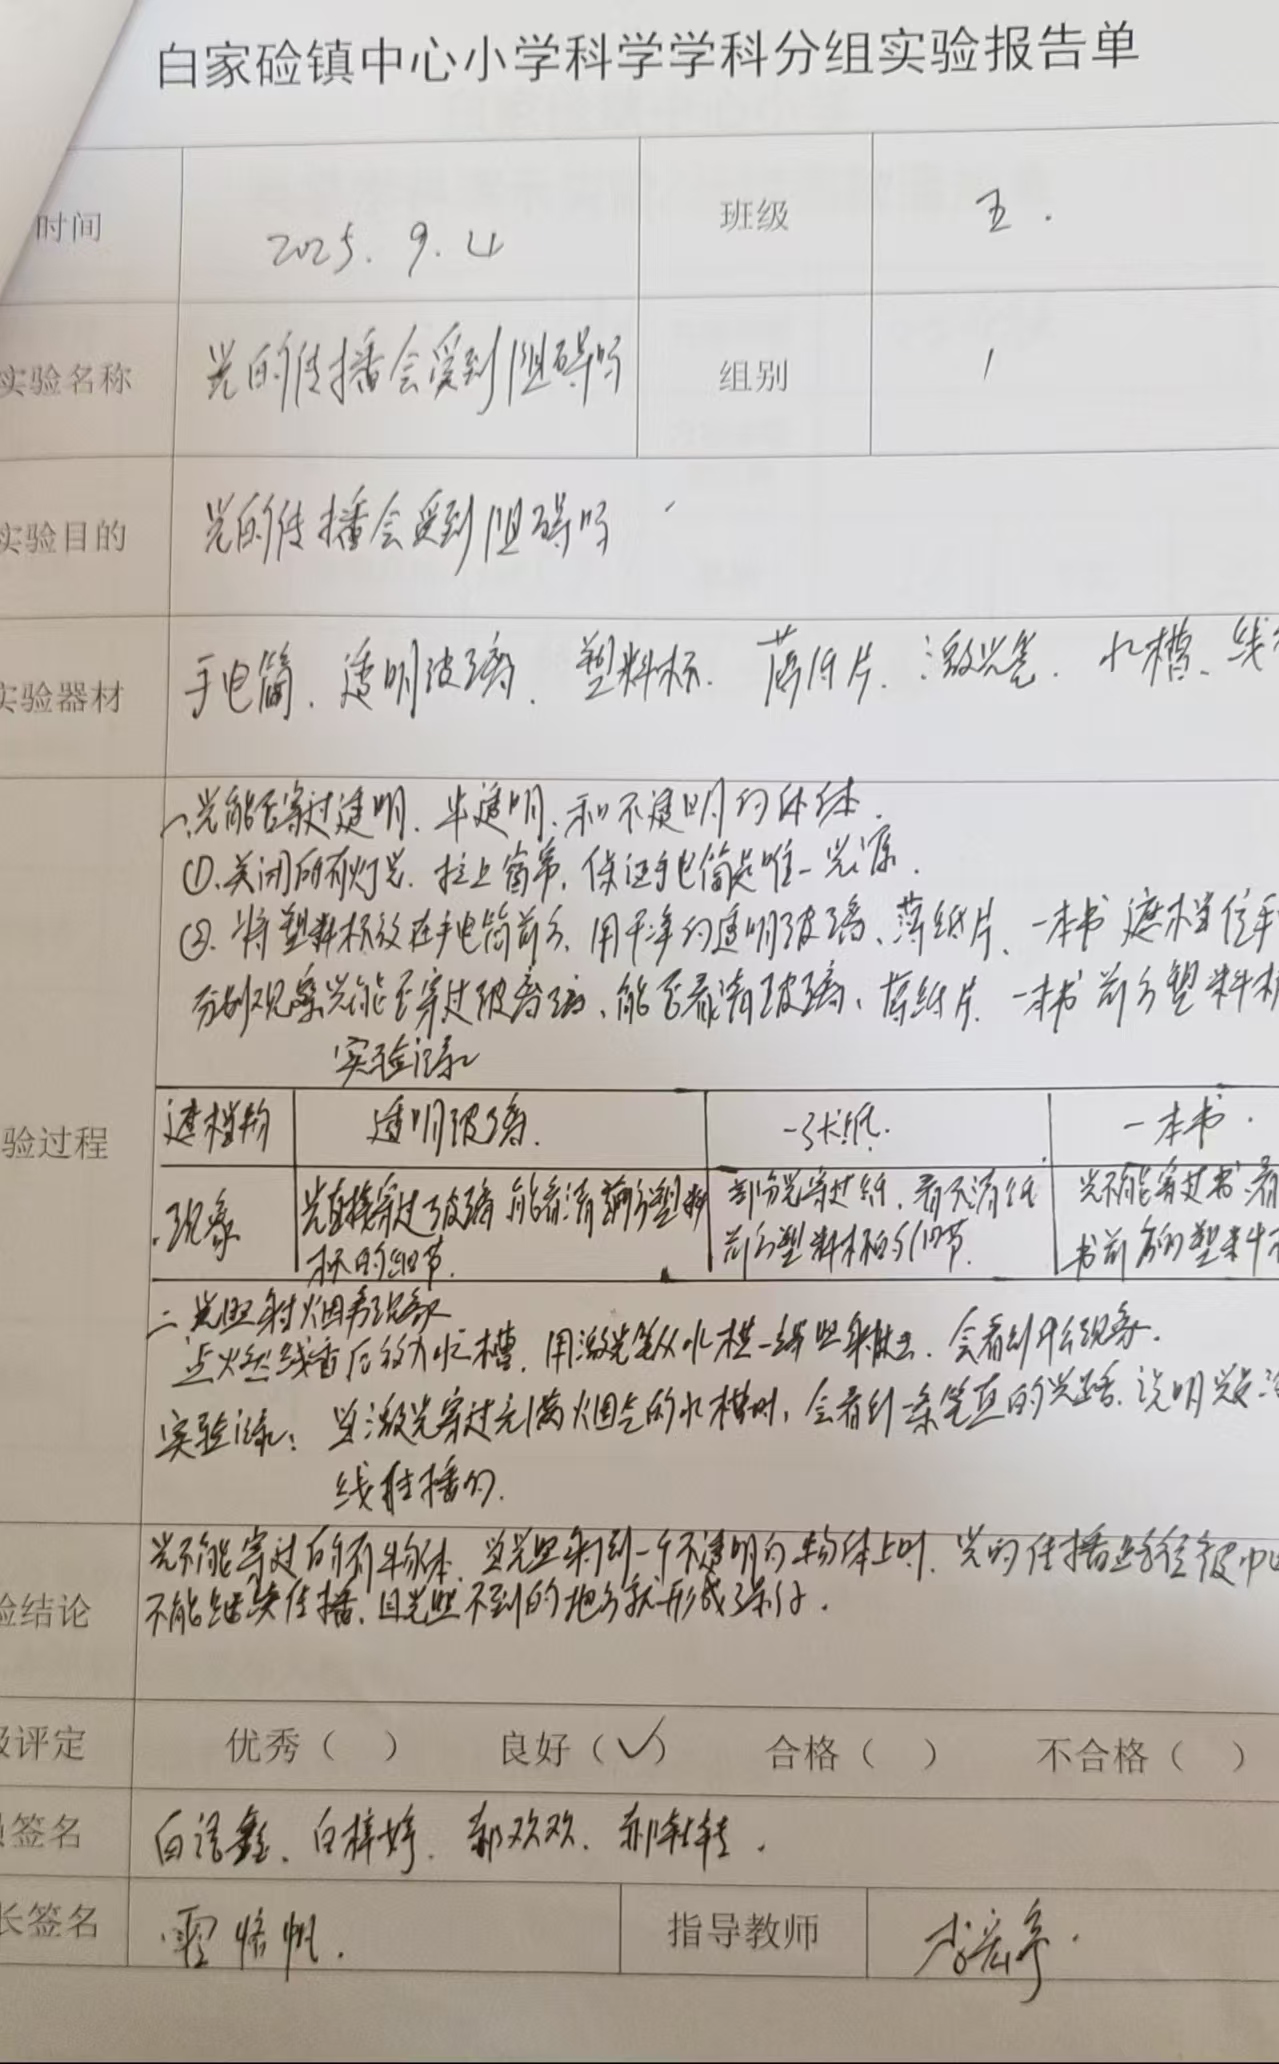 白家硷镇中心小学科学学科分组实验报告单
时间 2025.9.4 班级 五.
实验名称 光的传播会受到阻碍吗 组别 1
实验目的 光的传播会受到阻碍吗
实验器材 手电筒、透明玻璃、塑料杯、薄纸片、激光笔、水槽、线
验过程
一、光能否穿过透明、半透明、和不透明的物体.
①、关闭所有灯光、拉上窗帘,保证手电筒是唯一光源.
②、将塑料杯放在手电筒前方,用干净的透明玻璃、薄纸片、一本书遮档住手
分别观察光能否穿过玻璃、能否看清玻璃、薄纸片、一本书前方塑料杯
实验记录
遮档物 透明玻璃. 一张纸. 一本书.
现象 光直接穿过了玻璃能看清前方塑料 部分光穿过纸,看不清纸 光不能穿过书,看
杯的细节. 前方塑料杯的细节. 书前方的塑料杯
二、光照射烟雾现象
点火燃线香后放入水槽,用激光笔从水槽一端照射,会看到什么现象.
实验记录:当激光穿过充满烟气的水槽时,会看到一条笔直的光路,说明光是沿
线传播的.
验结论 光不能穿过所有物体,当光照射到一个不透明的物体上时,光的传播路径被
不能继续传播,且光照不到的地方就形成了影子.
级评定 优秀( ) 良好(✓) 合格( ) 不合格( )
签名 白语鑫、白梓婷、郝欢欢、
长签名 指导教师